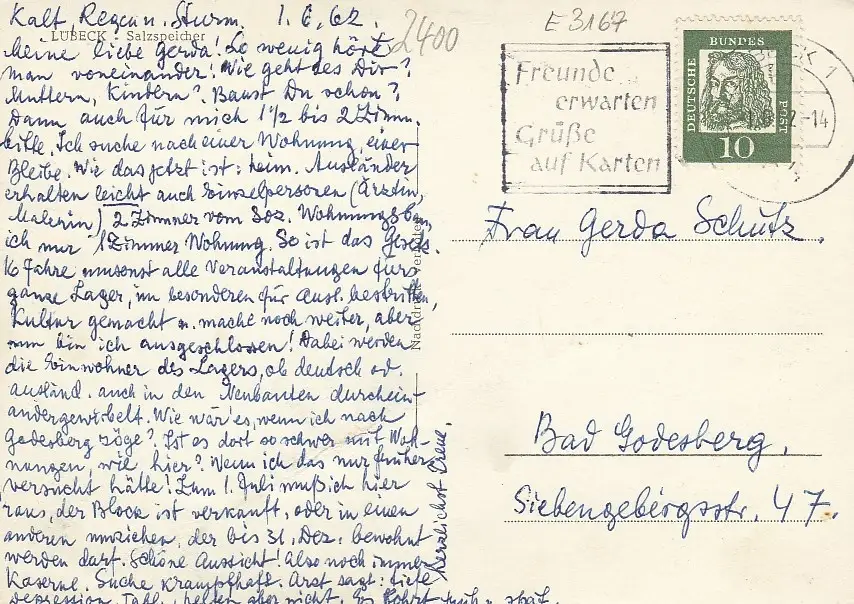 Kalt, Regen u. Sturm. 1.6.62.
LÜBECK · Salzspeicher
Meine liebe Gerda! So wenig hört
man voneinander! Wie geht es Dir?
Muttern, Kindern? Baust Du schon?
Dann auch für mich 1½ bis 2 Zimm.
bitte. Ich suche nach einer Wohnung, einer
Bleibe. Wie das jetzt ist: heim. Ausländer
erhalten leicht auch Einzelpersonen (Ärztin,
Malerin) 2 Zimmer vom Soz. Wohnungsbau,
ich nur 1 Zimmer Wohnung. So ist das Gesetz.
16 Jahre umsonst alle Veranstaltungen fürs
ganze Lager, im besonderen für Ausl. bestritten,
Kultur gemacht u. mache noch weiter, aber
nun bin ich ausgeschlossen! Dabei werden
die Einwohner des Lagers, ob deutsch od.
ausländ. auch in den Neubauten durchein-
andergewirbelt. Wie wär' es, wenn ich nach
Godesberg zöge? Ist es dort so schwer mit Woh-
nungen, wie hier? Wenn ich das nur früher
versucht hätte! Zum 1. Juli muß ich hier
raus, der Block ist verkauft, oder in einen
anderen umziehen, der bis 31. Dez. bewohnt
werden darf. Schöne Aussicht! Also noch immer
Kaserne. Suche krampfhaft. Arzt sagt: tiefe
Depression. Tabl. helfen aber nicht. Es früh u. spät.
Herzlichst Irene.
Nachdruck verboten
2400
E 3167
Freunde
erwarten
Grüße
auf Karten
DEUTSCHE BUNDES POST
10
Frau Gerda Schütz.
Bad Godesberg.
Siebengebirgsstr. 47.